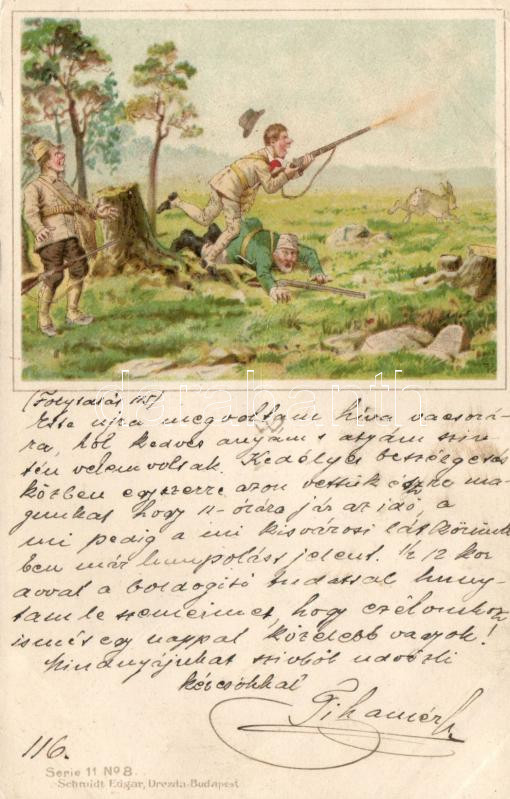 (Folytatás 115)
Este ujra megvoltam híva vacsorá-
ra, hol kedves anyám s atyám szin-
tén velem voltak. Kedélyes beszélgetés
közben egyszerre azon vettük észre ma-
gunkat hogy 11-órára jár az idő, a
mi pedig a mi kisvárosi
ben már lumpolást jelent. ½ 12 kor
avval a boldogító tudattal huny-
tam le szemeimet, hogy czélomhoz
ismét egy nappal közelebb vagyok!
Mindnyájukat szivből üdvözli
kézcsókkal
116.
Serie 11 No 8.
Schmidt Edgar, Drezda-Budapest
darabanth.com